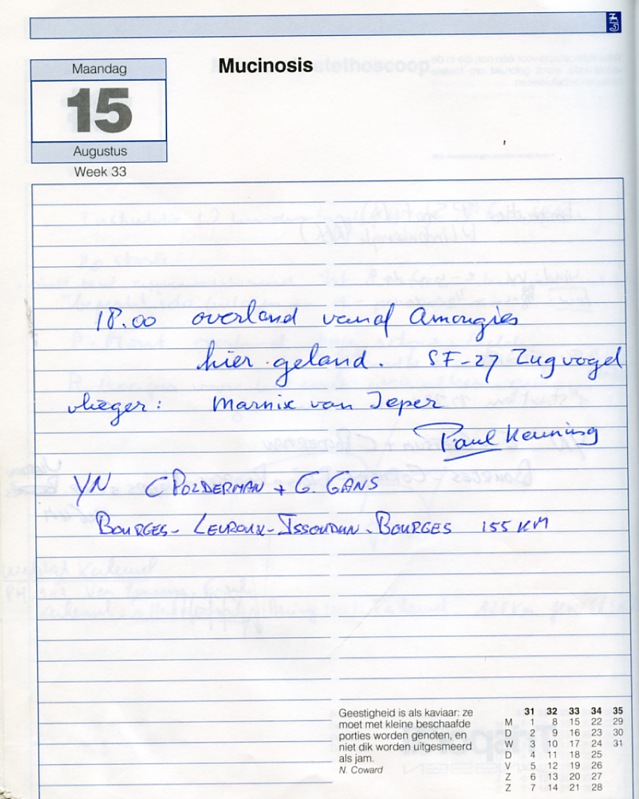 Maandag
15
Augustus
Week 33
Mucinosis
18.00 overland vanaf Amougies
hier geland. SF-27 Zugvogel
vlieger: Marnix van Ieper
Paul Keuning
YN C POLDERMAN + G. GANS
BOURGES - LEVROUX - ISSOUDUN - BOURGES 155 KM
Geestigheid is als kaviaar: ze
moet met kleine beschaafde
porties worden genoten, en
niet dik worden uitgesmeerd
als jam.
N. Coward
31 32 33 34 35
M 1 8 15 22 29
D 2 9 16 23 30
W 3 10 17 24 31
D 4 11 18 25
V 5 12 19 26
Z 6 13 20 27
Z 7 14 21 28